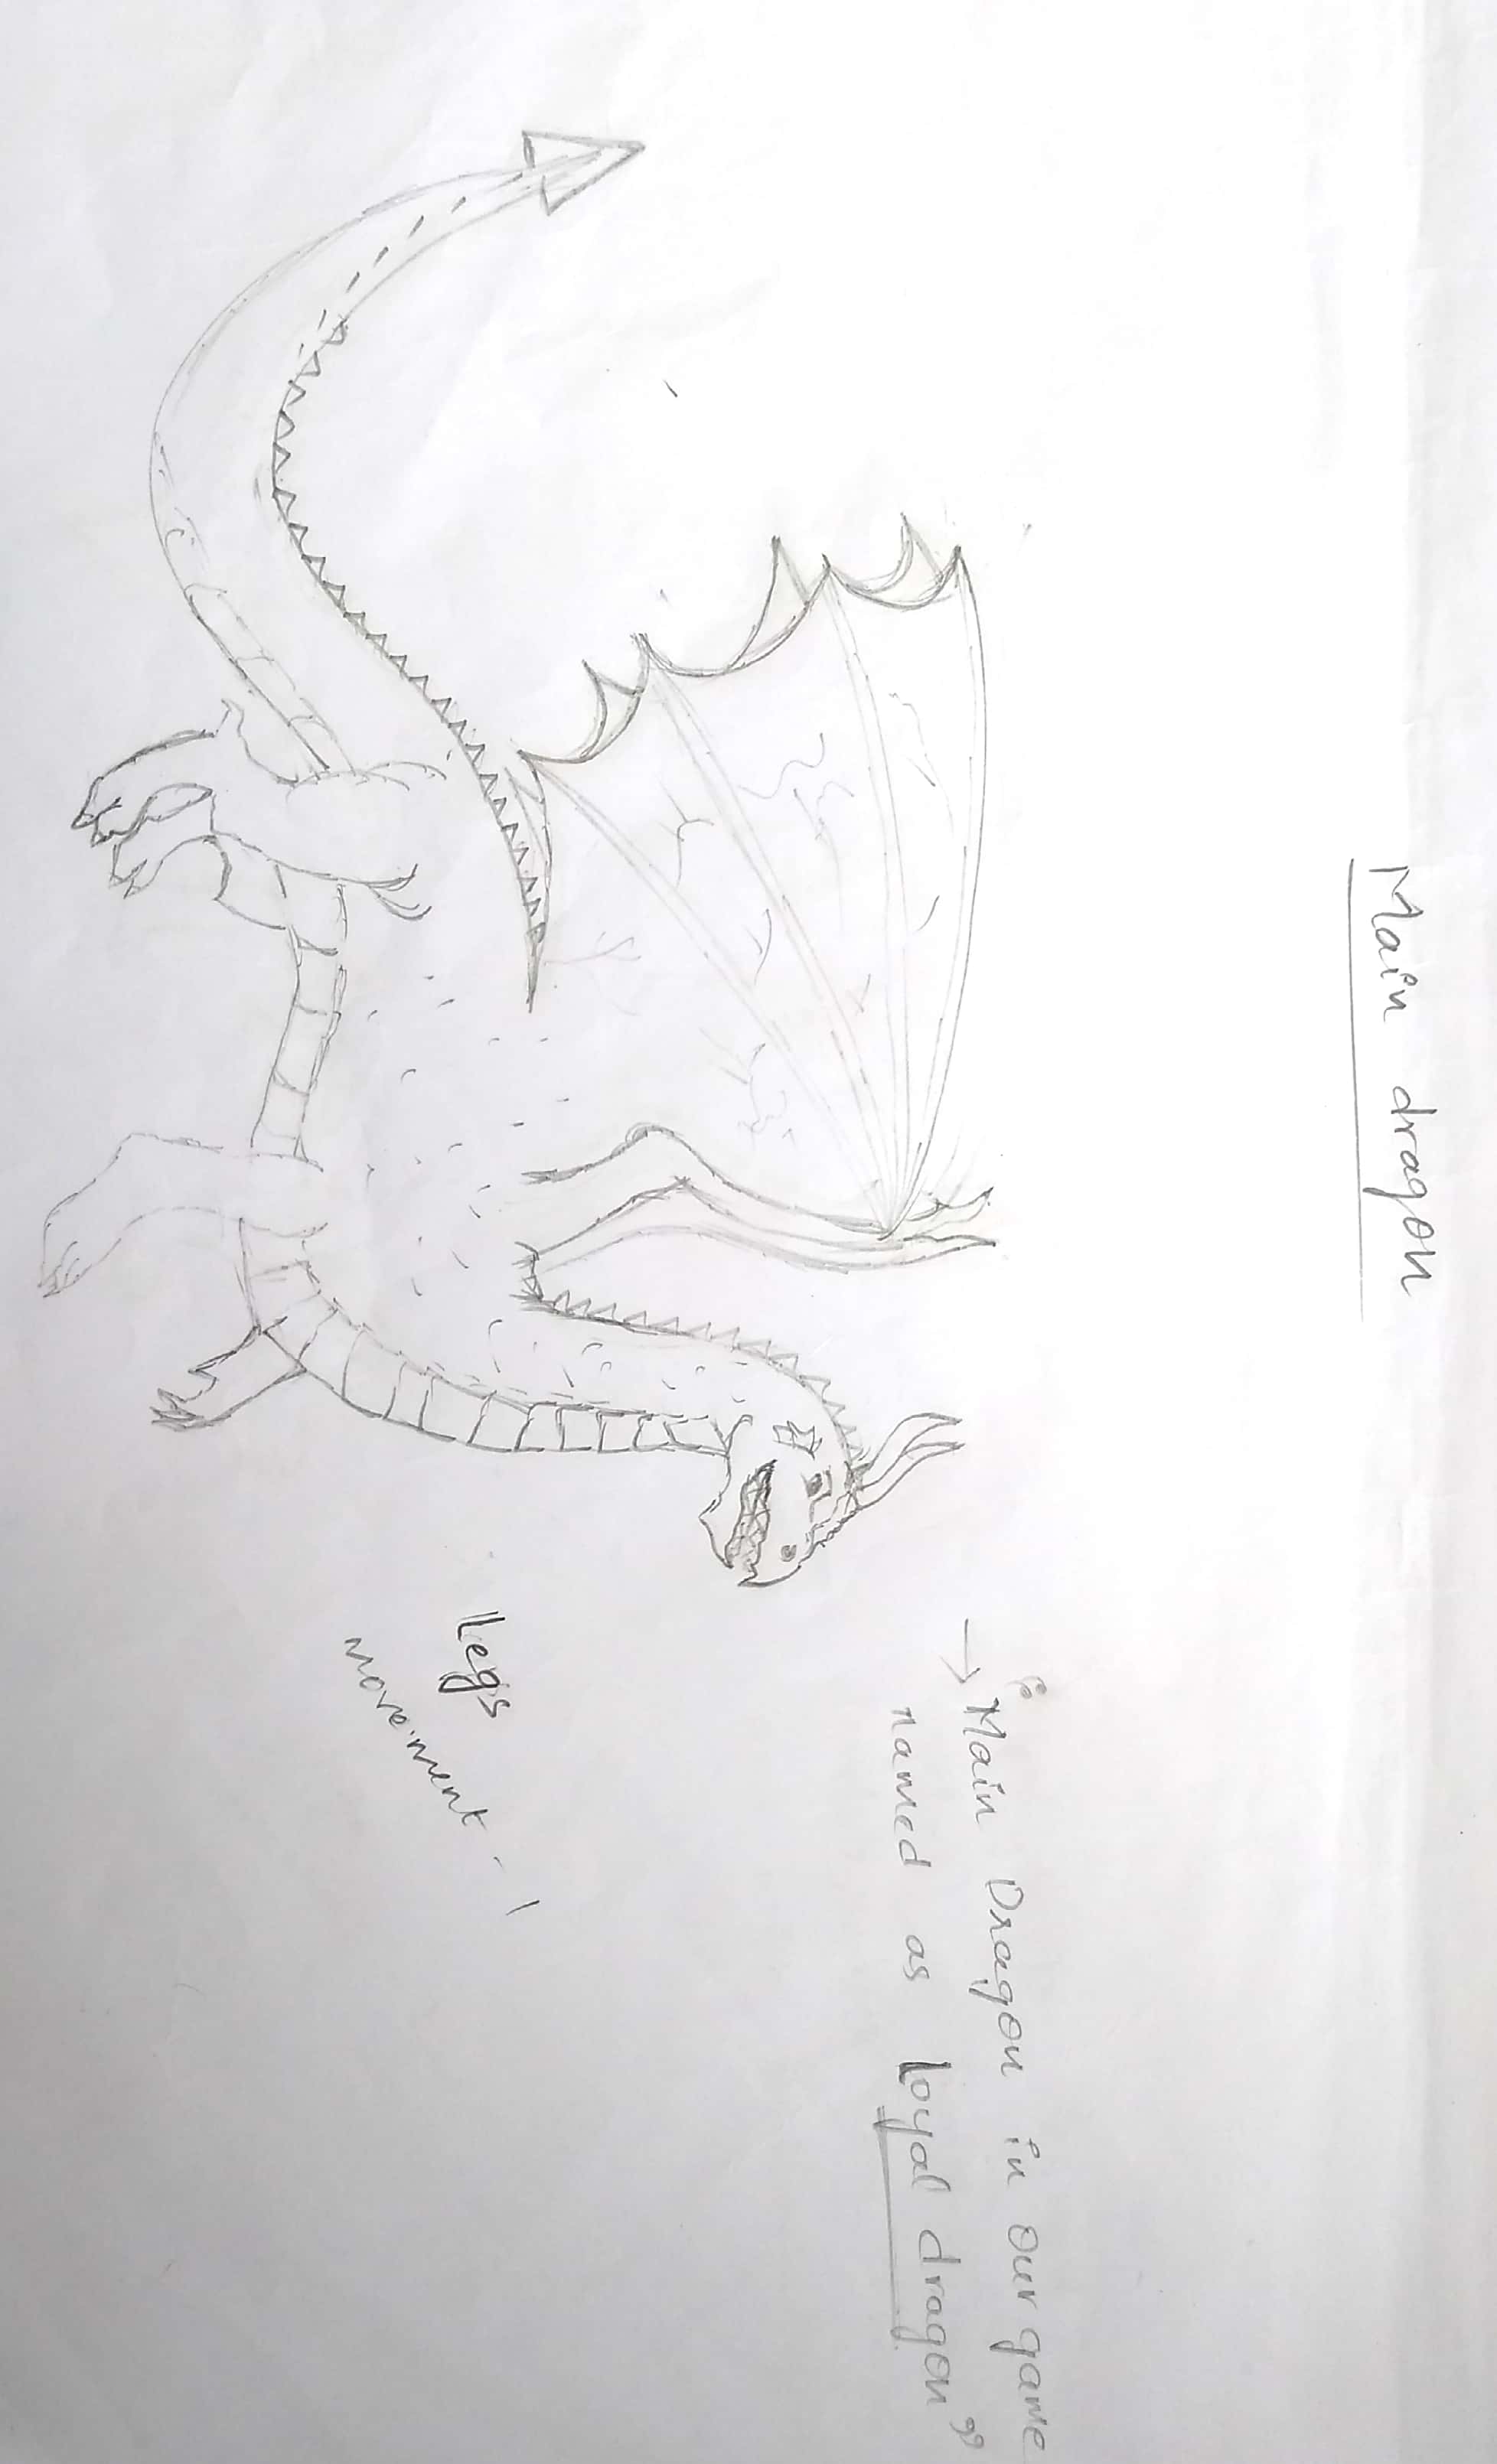 Main dragon
“Main Dragon in our game
→ named as Loyal dragon”
Legs
movement - 1